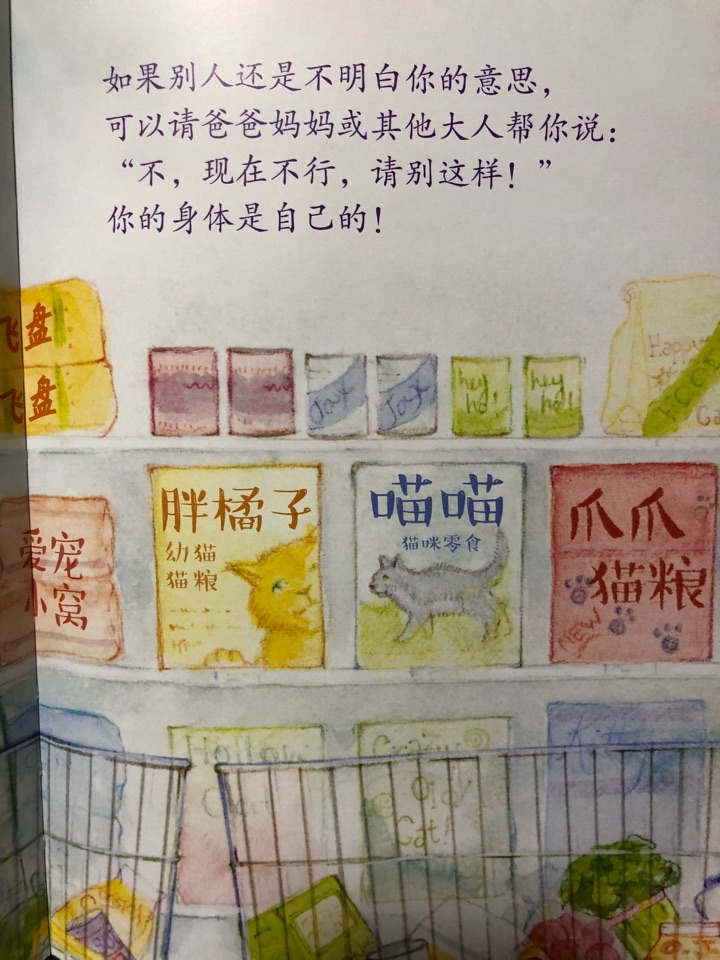 如果别人还是不明白你的意思，
可以请爸爸妈妈或其他大人帮你说：
“不，现在不行，请别这样！”
你的身体是自己的！
飞盘
飞盘
Jax
Jax
hey
ho!
hey
ho!
Happy
爱宠
小窝
胖橘子
幼猫
猫粮
喵喵
猫咪零食
爪爪
猫粮
NEW
Hollow
Cat
Crazy
Old
Cat!
Kitty